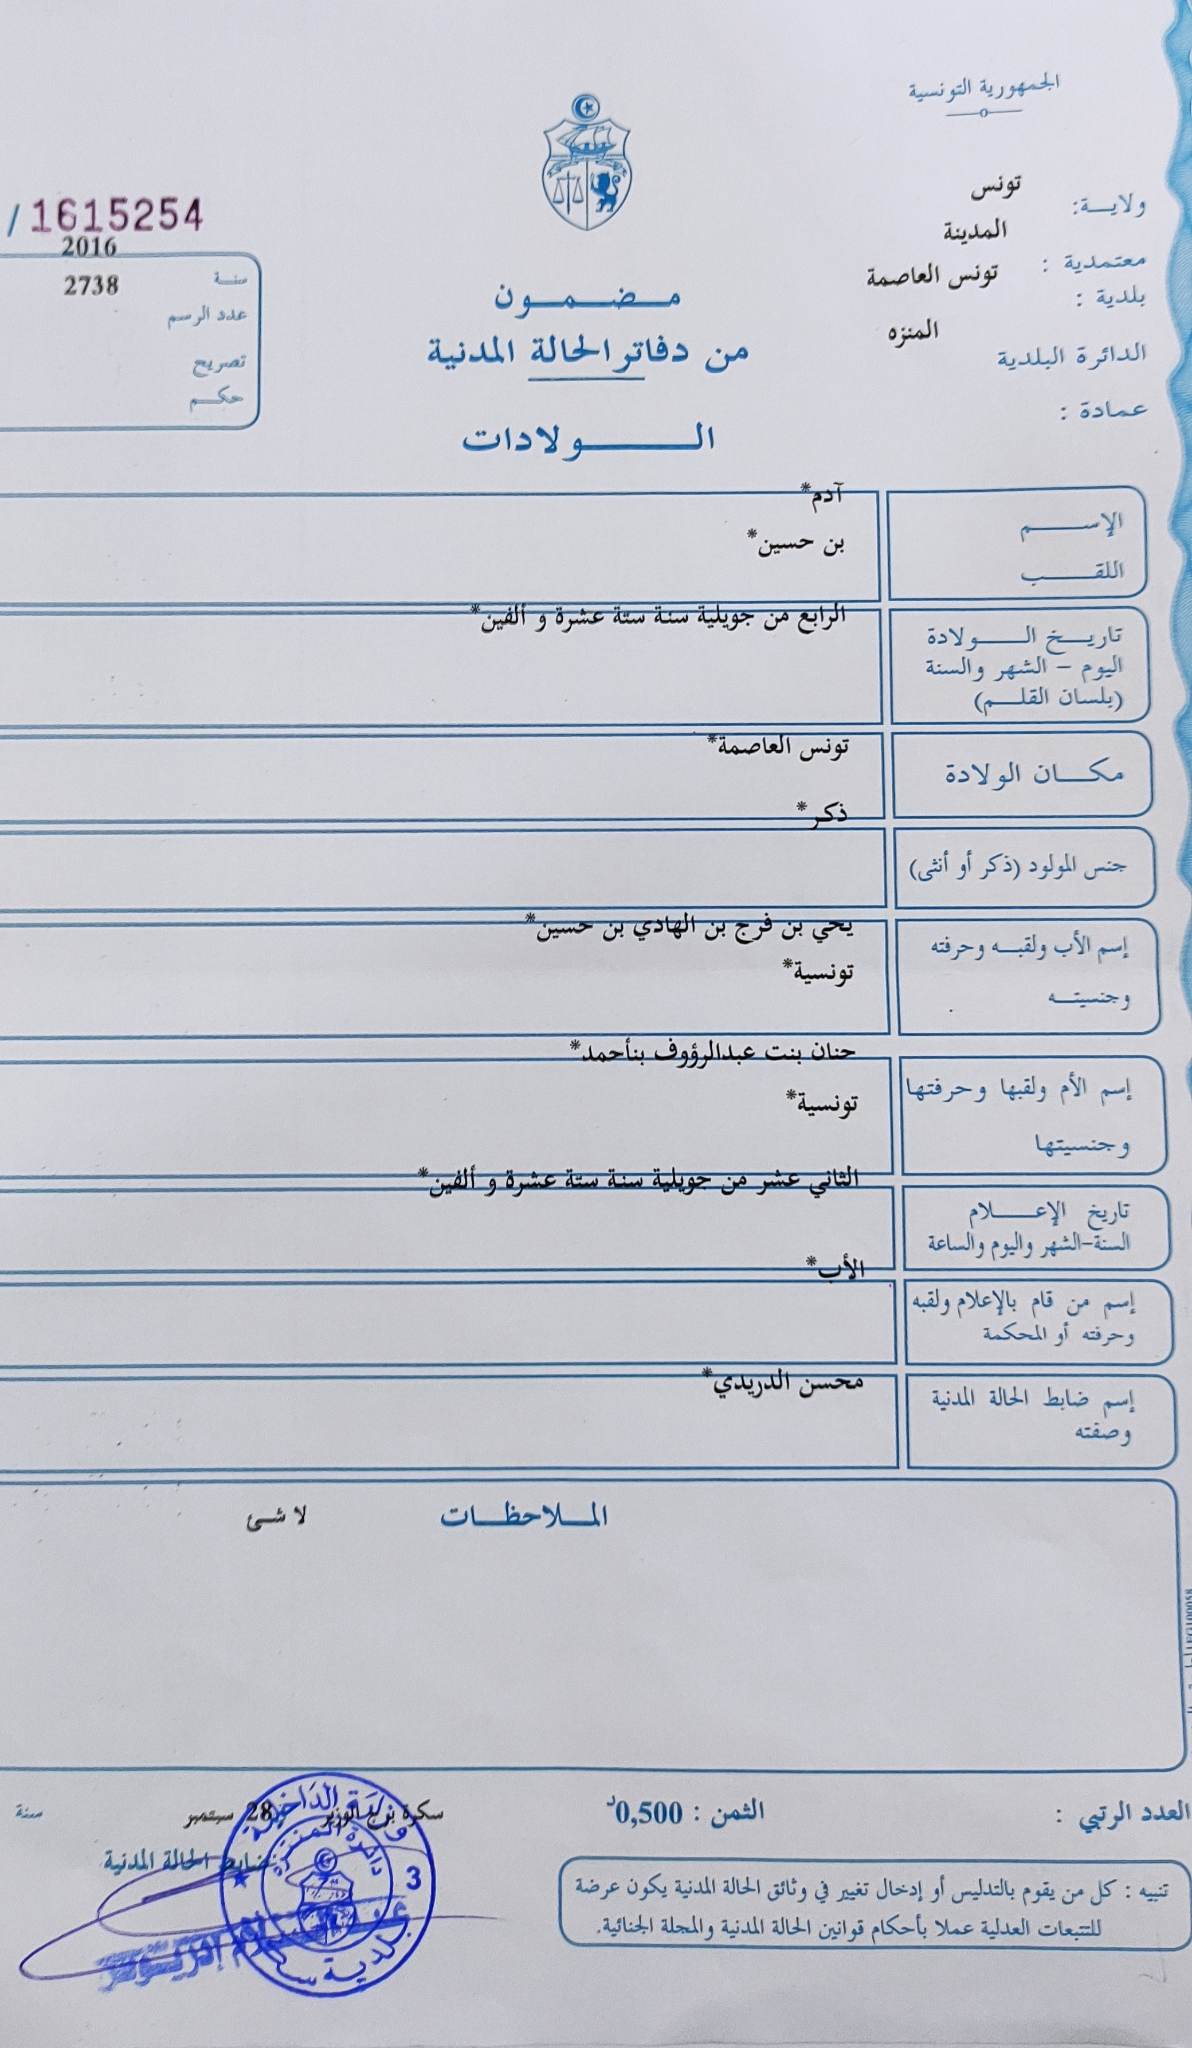 الجمهورية التونسية
ولايـــة: تونس
معتمدية : المدينة
بلدية : تونس العاصمة
الدائرة البلدية المنزه
عمادة :
/ 1615254
سنـة 2016
عدد الرسم 2738
تصريح
حكـم
مـضـمـون
من دفاتر الحالة المدنية
الـــولادات
الإســـم آدم*
اللقـــب بن حسين*
تاريـــخ الـــولادة الرابع من جويلية سنة ستة عشرة و ألفين*
اليوم - الشهر والسنة
(بلسان القلـــم)
مكـــان الولادة تونس العاصمة*
جنس المولود (ذكر أو أنثى) ذكر*
إسم الأب ولقبـــه وحرفته يحي بن فرج بن الهادي بن حسين*
وجنسيتـــه تونسية*
إسم الأم ولقبها وحرفتها حنان بنت عبدالرؤوف بنأحمد*
وجنسيتها تونسية*
تاريخ الإعـــلام الثاني عشر من جويلية سنة ستة عشرة و ألفين*
السنة-الشهر واليوم والساعة
إسم من قام بالإعلام ولقبه الأب*
وحرفته أو المحكمة
إسم ضابط الحالة المدنية محسن الدريدي*
وصفته
المـــلاحظـــات لا شئ
العدد الرتبي :
الثمن : 0,500د
سكرة برج الوزير 28 سبتمبر سنة
ضابط الحالة المدنية
تنبيه : كل من يقوم بالتدليس أو إدخال تغيير في وثائق الحالة المدنية يكون عرضة
للتتبعات العدلية عملا بأحكام قوانين الحالة المدنية والمجلة الجنائية.
بلدية سكرة
3